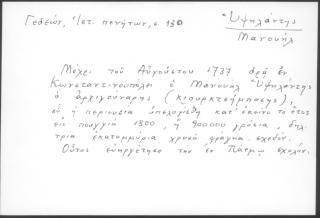 Γεδεών, Ἱστ. πενήτων, σ. 130
Ὑψηλάντης
Μανουήλ
Μέχρι τοῦ Αὐγούστου 1737 δρᾷ ἐν
Κωνσταντινουπόλει ὁ Μανουήλ Ὑψηλάντης
ὁ ἀρχιγούναρης (κιουρκτσέμπασης),
οὗ ἡ περιουσία ὑπελογίσθη κατ' ἐκεῖνο τό ἔτος
εἰς πουγγιά 1800, ἤ 900000 γρόσια, δηλ.
τρία ἑκατομμύρια χρυσᾶ φράγκα σχεδόν.
Οὗτος εὐηργέτησε τήν ἐν Πάτμῳ σχολήν.